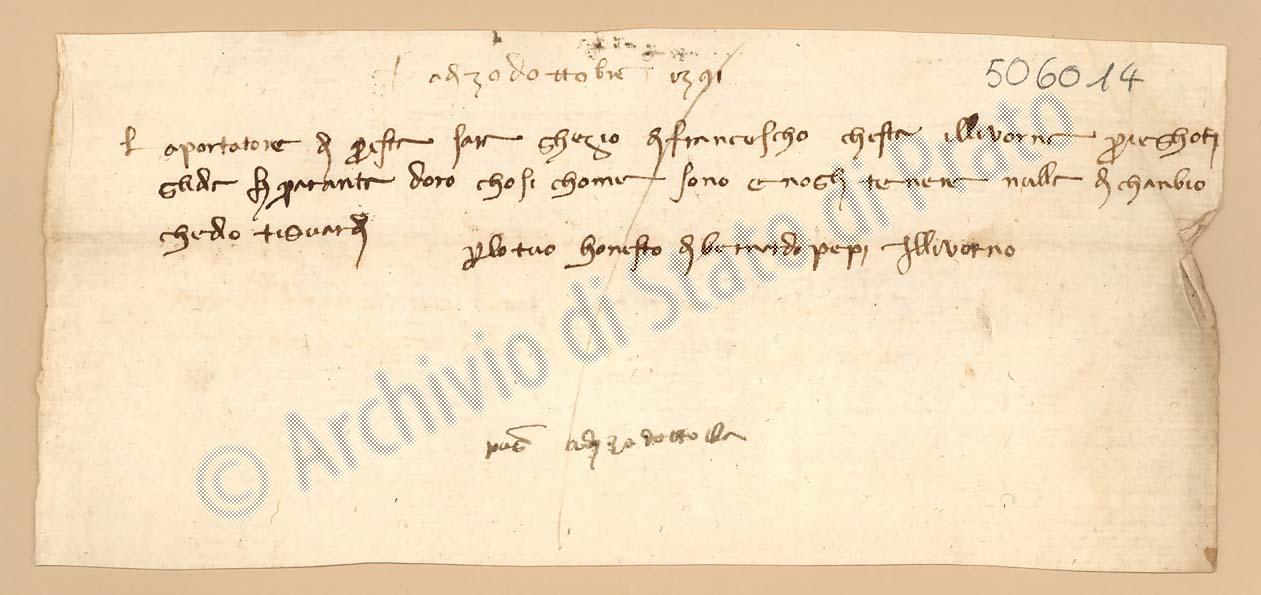 adi 30 dottobre 1391
5060 14
aportatore di questa sara ghezio di francescho chesta illivorna preghoti
glide quaranta doro chosi chome sono e nogli tenere nulla di chanbio
chedio tiguardi
per lo tuo honesto di bernardo pepi Illivorno
adi 30 dottobre
© Archivio di Stato di Prato